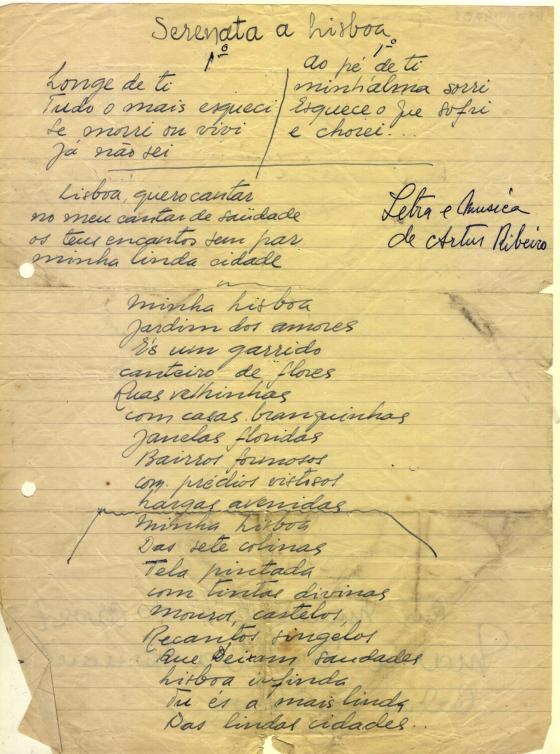 Serenata a Lisboa
1º
Longe de ti
Tudo o mais esqueci
Se morri ou vivi
Já não sei
1º
Ao pé de ti
minh'alma sorri
Esquece o que sofri
e chorei...
Lisboa, quero cantar
no meu cantar de saüdade
os teus encantos sem par
minha linda cidade
Letra e Musica
de Artur Ribeiro
Minha Lisboa
Jardim dos amores
És um garrido
canteiro de flores
Ruas velhinhas
com casas branquinhas
Janelas floridas
Bairros formosos
com prédios vistosos
Largas avenidas
Minha Lisboa
Das sete colinas
Tela pintada
com tintas divinas
Mouros, castelos,
Recantos singelos
Que Deixam saudades
Lisboa infinda
Tu és a mais linda
Das lindas cidades..